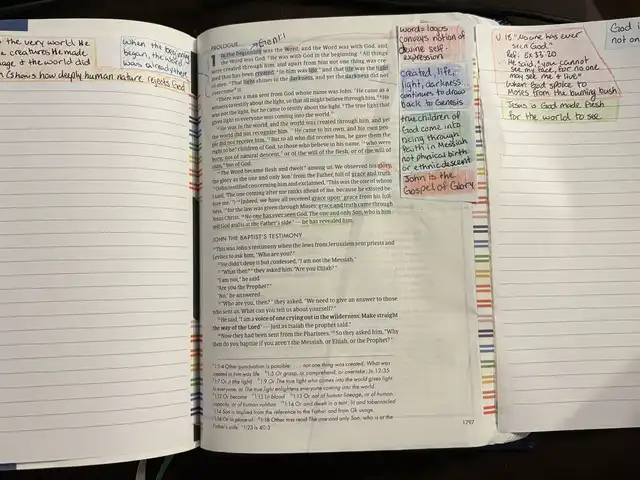 s the very world. He
e creatures He made
nage & the world did
n (shows how deeply human nature rejects God
When the beginning
began, the word
was already there
PROLOGUE
1 In the beginning was the Word, and the Word was with God, and
the Word was God. He was with God in the beginning. All things
were created through him, and apart from him not one thing was cre-
ated that has been created. In him was life, and that life was the light
of men. That light shines in the darkness, and yet the darkness did not
overcome it.
There was a man sent from God whose name was John. He came as a
witness to testify about the light, so that all might believe through him.
was not the light, but he came to testify about the light. The true light that
gives light to everyone, was coming into the world.
He was in the world, and the world was created through him, and yet
the world did not recognize him. He came to his own, and his own peo-
ple did not receive him. But to all who did receive him, he gave them the
right to be children of God, to those who believe in his name, who were
born, not of natural descent, or of the will of the flesh, or of the will of
man, but of God.
The Word became flesh and dwelt among us. We observed his glory,
the glory as the one and only Son from the Father, full of grace and truth.
(John testified concerning him and exclaimed, "This was the one of whom
I said, 'The one coming after me ranks ahead of me, because he existed be-
fore me.'") Indeed, we have all received grace upon grace from his full-
ness, for the law was given through Moses; grace and truth came through
Jesus Christ. No one has ever seen God. The one and only Son, who is him-
self God and is at the Father's side — he has revealed him.
JOHN THE BAPTIST'S TESTIMONY
This was John's testimony when the Jews from Jerusalem sent priests and
Levites to ask him, "Who are you?"
He didn't deny it but confessed, "I am not the Messiah."
"What then?" they asked him. "Are you Elijah?"
"I am not," he said.
"Are you the Prophet?"
"No," he answered.
"Who are you, then?" they asked. "We need to give an answer to those
who sent us. What can you tell us about yourself?"
He said, "I am a voice of one crying out in the wilderness: Make straight
the way of the Lord — just as Isaiah the prophet said."
Now they had been sent from the Pharisees. So they asked him, "Why
then do you baptize if you aren't the Messiah, or Elijah, or the Prophet?"
1:3-4 Other punctuation is possible: . . . not one thing was created. What was
created in him was life 1:5 Or grasp, or comprehend, or overtake; Jn 12:35
1:9 Or The true light who comes into the world gives light
to everyone, or The true light enlightens everyone coming into the world.
1:12 Or become 1:13 Lit blood 1:13 Or not of human lineage, or of human
capacity, or of human volition 1:14 Or and dwelt in a tent; lit and tabernacled
1:14 Son is implied from the reference to the Father and from Gk usage.
1:16 Or in place of 1:18 Other mss read The one and only Son, who is at the
Father's side 1:23 Is 40:3
1797
word = logos
conveys notion of
divine self-
expression
created, life,
light, darkness
continues to draw
back to Genesis
true children of
God come into
being through
faith in Messiah
not physical birth
or ethnic descent
John is the
Gospel of Glory
V. 18 "No one has ever
seen God."
Ref: Ex 33:20
He said, "you cannot
see my face, for no one
may see me & live"
when God spoke to
Moses from the burning bush
Jesus is God made flesh
for the world to see
God i
not on